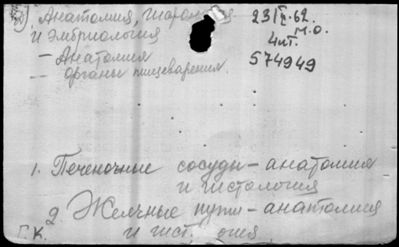 Анатомия, гистология 23/V.62.
и эмбриология М.О.
— Анатомия 4шт.
— органы пищеварения. 574949
1. Печеночные сосуды – анатомия
и гистология
2 Желчные пути – анатомия
и гист огия
Г.К.